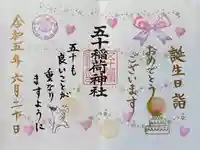 誕生日詣
おめでとう
ございます
五十稲荷神社
五十も
良いことが
重なり
ますように
令和五年六月二十日